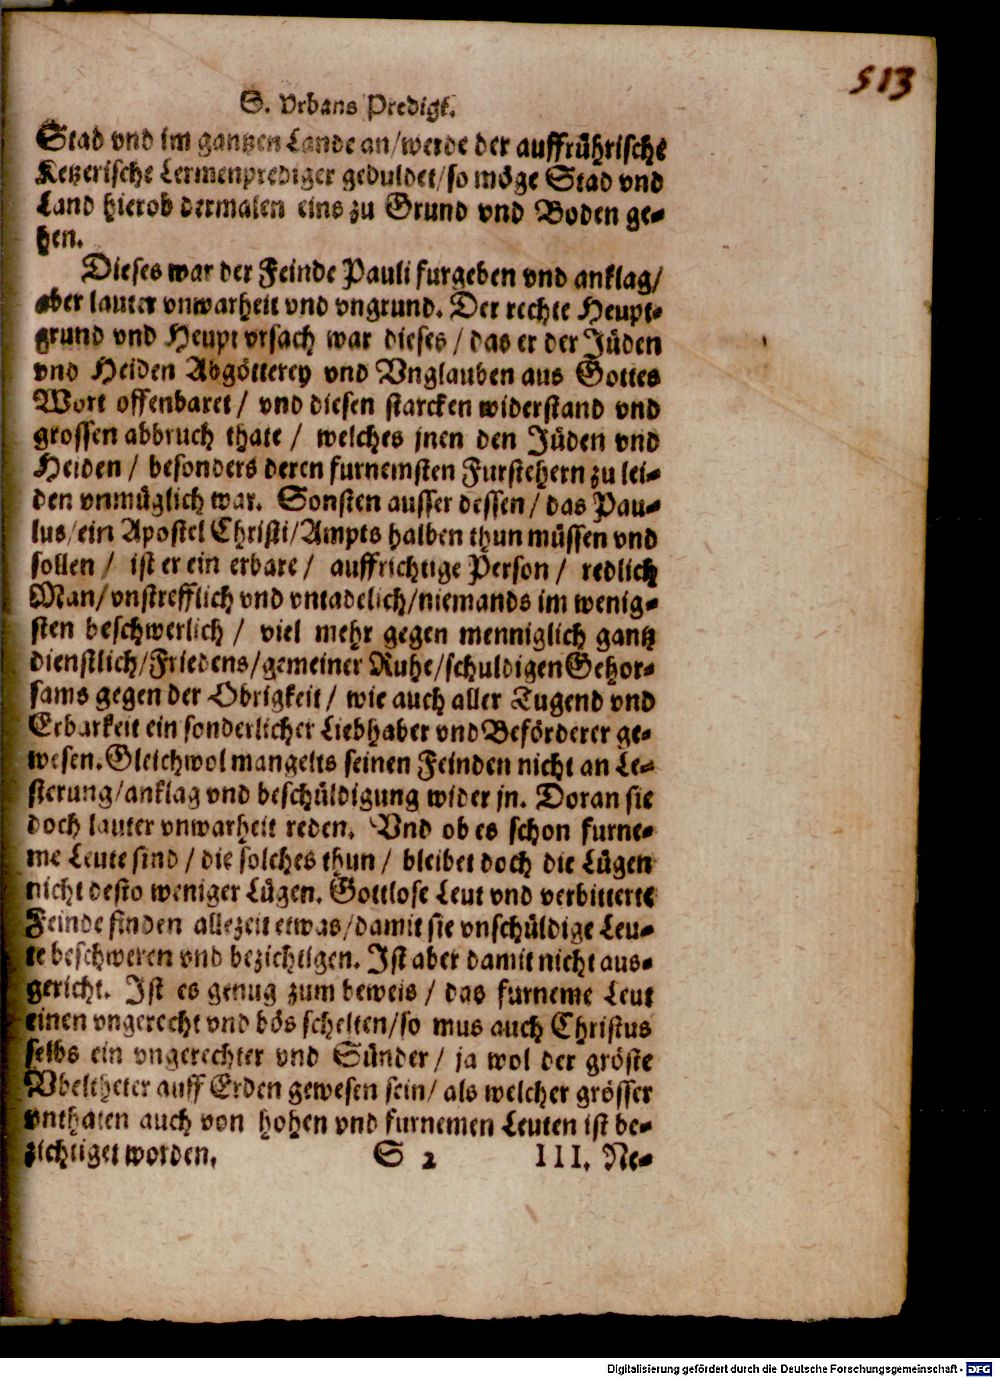 513
S. Vrbans Predigt.
Stad vnd im gantzen Lande an/werde der auffrührische
Ketzerische Lermenprediger geduldet/so möge Stad vnd
Land hierob dermalen eins zu Grund vnd Boden ge-
hen.
Dieses war der Feinde Pauli furgeben vnd anklag/
aber lauter vnwarheit vnd vngrund. Der rechte Heupt-
grund vnd Heupt vrsach war dieses / das er der Jüden
vnd Heiden Abgötterey vnd Vnglauben aus Gottes
Wort offenbaret / vnd diesen starcken widerstand vnd
grossen abbruch thate / welches jnen den Jüden vnd
Heiden / besonders deren furnemsten Furstehern zu lei-
den vnmüglich war. Sonsten ausser dessen / das Pau-
lus/ein Apostel Christi/Ampts halben thun müssen vnd
sollen / ist er ein erbare / auffrichtige Person / redlich
Man/vnstrefflich vnd vntadelich/niemands im wenig-
sten beschwerlich / viel mehr gegen menniglich gantz
dienstlich/Friedens/gemeiner Ruhe/schuldigen Gehor-
sams gegen der Obrigkeit / wie auch aller Tugend vnd
Erbarkeit ein sonderlicher Liebhaber vnd Beförderer ge-
wesen. Gleichwol mangelts seinen Feinden nicht an Le-
sterung/anklag vnd beschüldigung wider jn. Doran sie
doch lauter vnwarheit reden. Vnd ob es schon furne-
me Leute sind / die solches thun / bleibet doch die Lügen
nicht desto weniger Lügen. Gottlose Leut vnd verbitterte
Feinde finden allezeit etwas/damit sie vnschüldige Leu-
te beschweren vnd bezichtigen. Ist aber damit nicht aus-
gericht. Ist es genug zum beweis / das furneme Leut
einen vngerecht vnd bös schelten/so mus auch Christus
selbs ein vngerechter vnd Sünder / ja wol der gröste
Vbeltheter auff Erden gewesen sein/ als welcher grösser
vnthaten auch von hohen vnd furnemen Leuten ist be-
zichtiget worden.
S 2
III. Ne-
Digitalisierung gefördert durch die Deutsche Forschungsgemeinschaft - DFG